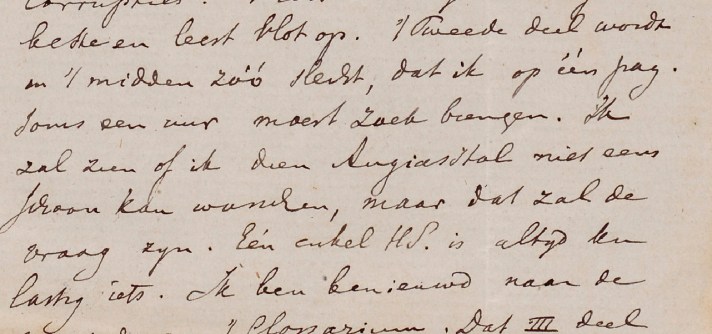 beste en leest vlot op. 't Tweede deel wordt
in 't midden zóó slecht, dat ik op één pag.
soms een uur moest zoek brengen. Ik
zal zien of ik dien Augiasstal niet eens
schoon kan wasschen, maar dat zal de
vraag zyn. Eén enkel HS. is altyd een
lastig iets. Ik ben benieuwd naar de
't Glossarium. Dat III deel